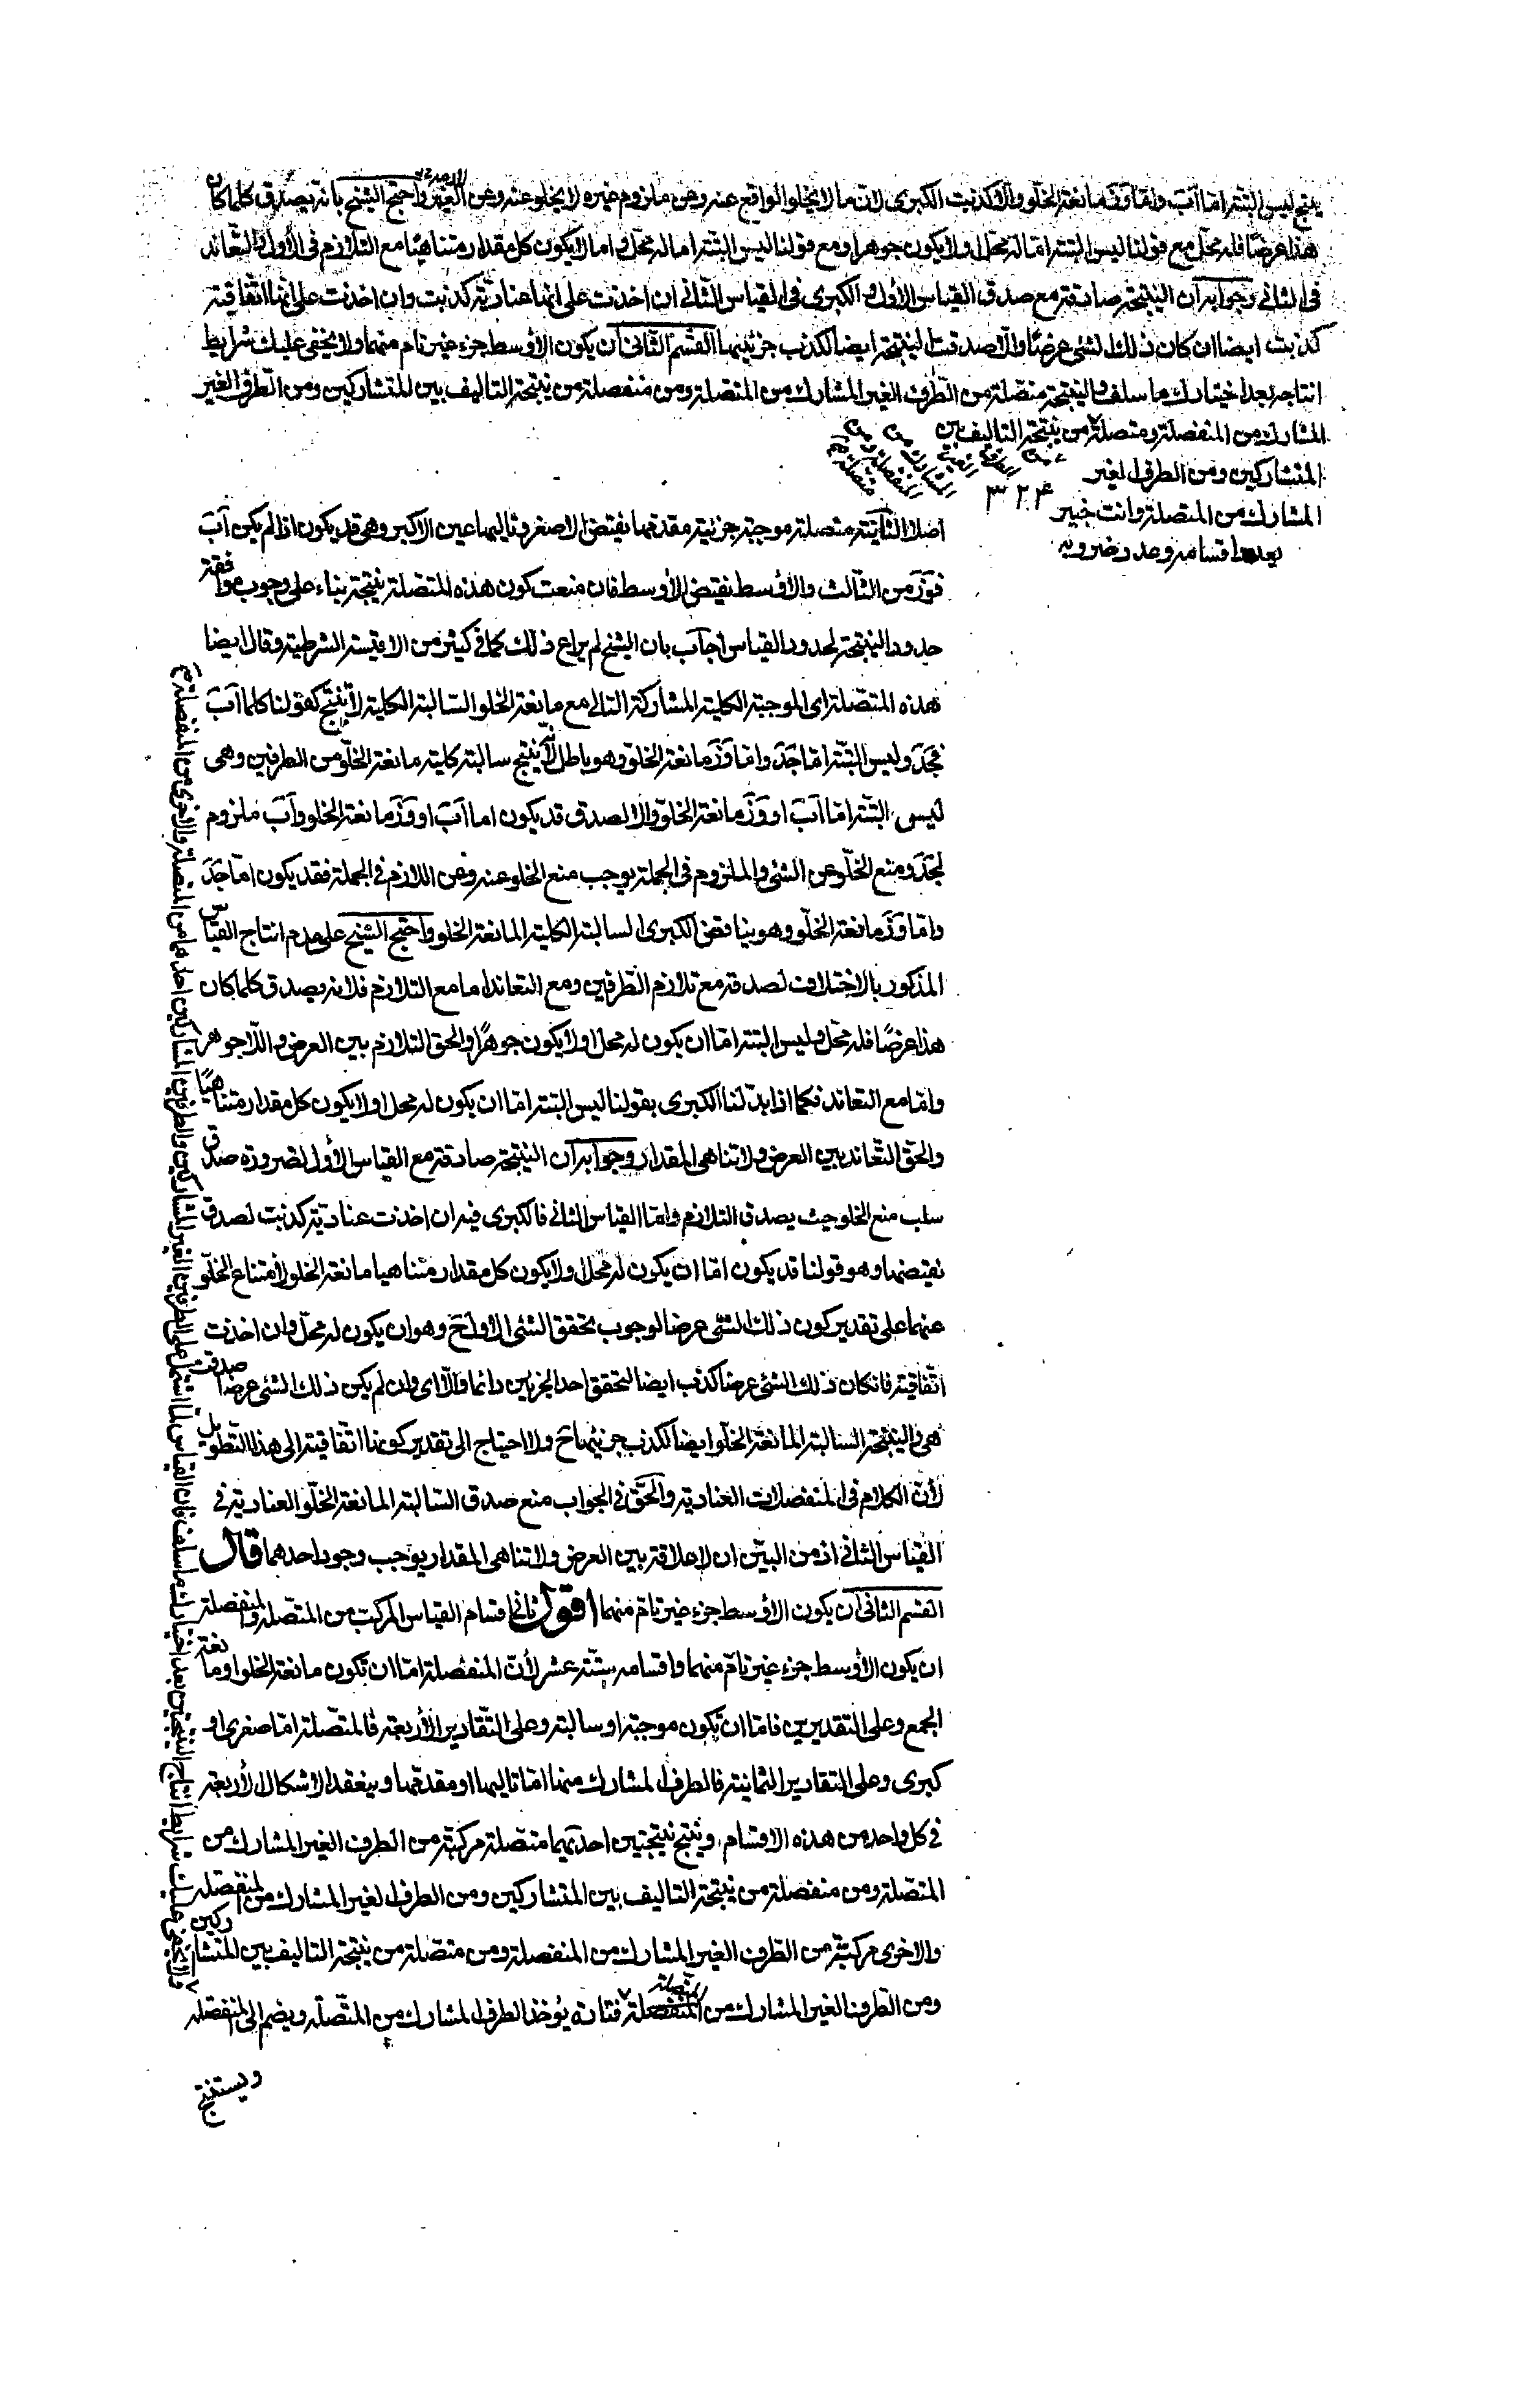 ينتج ليس البتة اما آب واما وز مانعة الخلو والا لكذبت الكبرى لان ما لا يخلو الواقع عنه وعن ملزوم غيره لا يخلو عنه وعن الغير واحتج الشيخ بانه يصدق كلما كان
هذا عرضا فله محل مع قولنا ليس البتة اما له محل ولا يكون جوهرا ومع قولنا ليس البتة اما له محل واما لا يكون كل مقدار متناهيا مع التلازم في الأول والتعاند
في الثاني وجوابه ان النتيجة صادقة مع صدق القياس الأول والكبرى في القياس الثاني ان اخذت على انها عنادية كذبت وان اخذت على انها اتفاقية
كذبت ايضا ان كان ذلك لشئ عرضا والا صدقت النتيجة ايضا لكذب جزئيها القسم الثاني ان يكون الأوسط جزء غير تام منهما ولا يخفى عليك شرايط
انتاجه بعد اختيارك ما سلف والنتيجة متصلة من الطرف الغير المشارك من المتصلة ومن منفصلة من نتيجة التاليف بين المتشاركين ومن الطرف الغير
المشارك من المنفصلة ومتصلة من نتيجة التاليف بين
المتشاركين ومن الطرف الغير
المشارك من المتصلة وانت خبير
بعدد اقسامه وعدد ضروبه
٣٢٤
اصلا الثانية متصلة موجبة جزئية مقدمها نقيض الاصغر وتاليها عين الاكبر وهى قد يكون اذا لم يكن آب
فوز من الثالث والأوسط نقيض الأوسط فان منعت كون هذه المتصلة نتيجة بناء على وجوب موافقة
حدود النتيجة لحدود القياس اجاب بان الشيخ لم يراع ذلك كما في كثير من الاقيسة الشرطية وقال ايضا
هذه المتصلة اى الموجبة الكلية المشاركة التالى مع مانعة الخلو السالبة الكلية لا ينتج كقولنا كلما آب
فجد وليس البتة اما جد واما وز مانعة الخلو وهو باطل لانه ينتج سالبة كلية مانعة الخلو من الطرفين وهى
ليس البتة اما آب او وز مانعة الخلو والا لصدق قد يكون اما آب او وز مانعة الخلو وآب ملزوم
لجد ومنع الخلو عن الشئ والملزوم في الجملة يوجب منع الخلو عنه وعن اللازم في الجملة فقد يكون اما جد
واما وز مانعة الخلو وهو يناقض الكبرى السالبة الكلية المانعة الخلو واحتج الشيخ على عدم انتاج القياس
المذكور بالاختلاف لصدقه مع تلازم الطرفين ومع التعاند اما مع التلازم فلانه يصدق كلما كان
هذا عرضا فله محل وليس البتة اما ان يكون له محل او لا يكون جوهرا والحق التلازم بين العرض واللاجوهر
واما مع التعاند فكما اذا بدلنا الكبرى بقولنا ليس البتة اما ان يكون له محل او لا يكون كل مقدار متناهيا
والحق التعاند بين العرض ولا تناهى المقدار وجوابه ان النتيجة صادقة مع القياس الأول لضرورة صدق
سلب منع الخلو حيث يصدق التلازم واما القياس الثاني فالكبرى فيه ان اخذت عنادية كذبت لصدق
نقيضها وهو قولنا قد يكون اما ان يكون له محل ولا يكون كل مقدار متناهيا مانعة الخلو لامتناع الخلو
عنهما على تقدير كون ذلك الشئ عرضا لوجوب تحقق الشئ الأول ح وهو ان يكون له محل وان اخذت
اتفاقية فان كان ذلك الشئ عرضا كذب ايضا لتحقق احد الجزئين دائما والا اى وان لم يكن ذلك الشئ عرضا صدقت
هى والنتيجة السالبة المانعة الخلو ايضا لكذب جزئيها ح ولا احتياج الى تقدير كونها اتفاقية الى هذا التطويل
لأن الكلام في المنفصلات العنادية والحق في الجواب منع صدق السالبة المانعة الخلو العنادية في
القياس الثاني اذ من البين ان لا علاقة بين العرض ولا تناهى المقدار يوجب وجود احدهما قال
القسم الثاني ان يكون الأوسط جزء غير تام منهما اقول ثاني اقسام القياس المركب من المتصلة والمنفصلة
ان يكون الأوسط جزء غير تام منهما واقسامه ستة عشر لأن المنفصلة اما ان تكون مانعة الخلو او مانعة
الجمع وعلى التقديرين فاما ان تكون موجبة او سالبة وعلى التقادير الأربعة فالمتصلة اما صغرى او
كبرى وعلى التقادير الثمانية فالطرف المشارك منها اما تاليها او مقدمها وينعقد الاشكال الأربعة
في كل واحد من هذه الاقسام وينتج نتيجتين احديهما متصلة مركبة من الطرف الغير المشارك من
المتصلة ومن منفصلة من نتيجة التاليف بين المتشاركين ومن الطرف الغير المشارك من المنفصلة
والاخرى مركبة من الطرف الغير المشارك من المنفصلة ومن متصلة من نتيجة التاليف بين المتشاركين
ومن الطرف الغير المشارك من المتصلة فتارة يؤخذ الطرف المشارك من المتصلة ويضم الى المنفصلة
ويستنتج
ولا يخفى عليك شرايط انتاج النتيجتين بعد اختيارك ما سلف فان القياس لما اشتمل على الطرفين الغير المشاركين والطرفين المشاركين احدهما من المتصلة والاخرى من المنفصلة